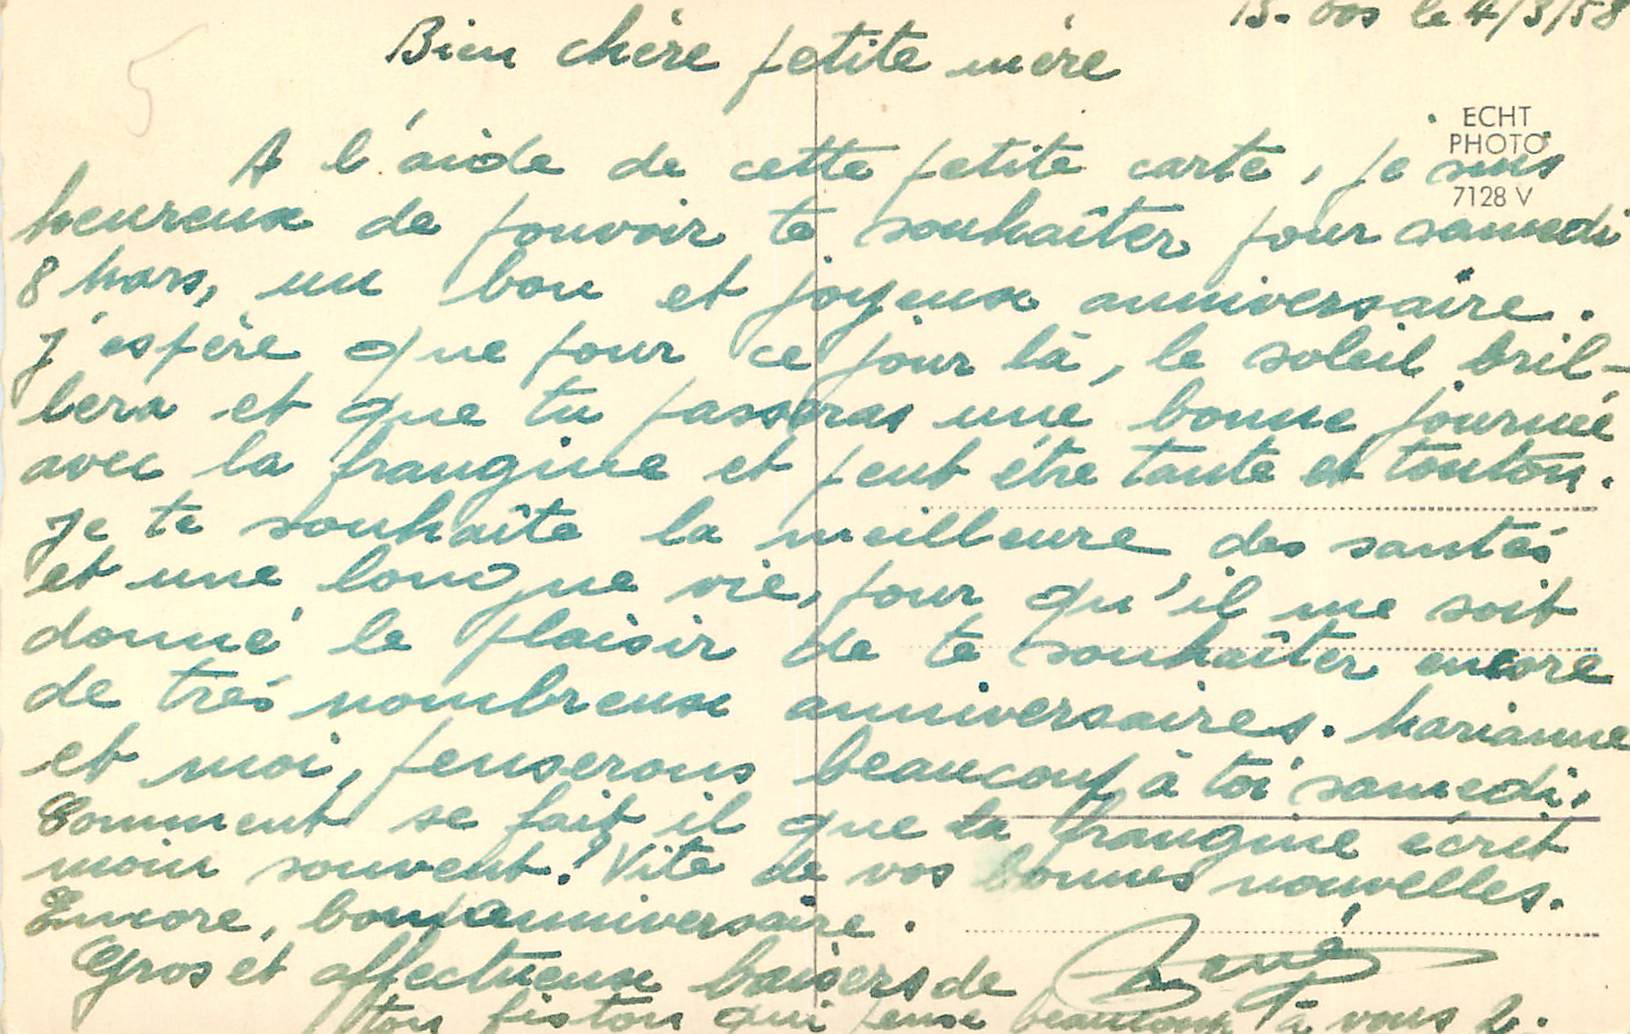 le 4/3/58
Bien chère petite mère
ECHT
PHOTO
7128 V
A l'aide de cette petite carte, je suis
heureux de pouvoir te souhaîter pour samedi
8 Mars, un bon et joyeux anniversaire.
J'espère que pour ce jour là, le soleil bril-
lera et que tu passeras une bonne journée
avec la frangine et peut être tante et tonton.
Je te souhaîte la meilleure des santés
et une longue vie, pour qu'il me soit
donné le plaisir de te souhaîter encore
de très nombreux anniversaires. Marianne
et moi, penserons beaucoup à toi samedi.
Comment se fait il que la frangine écrit
moin souvent? Vite de vos bonnes nouvelles.
Encore, bon anniversaire.
Gros et affectueux baisers de
ton fiston qui pense beaucoup à vous
5